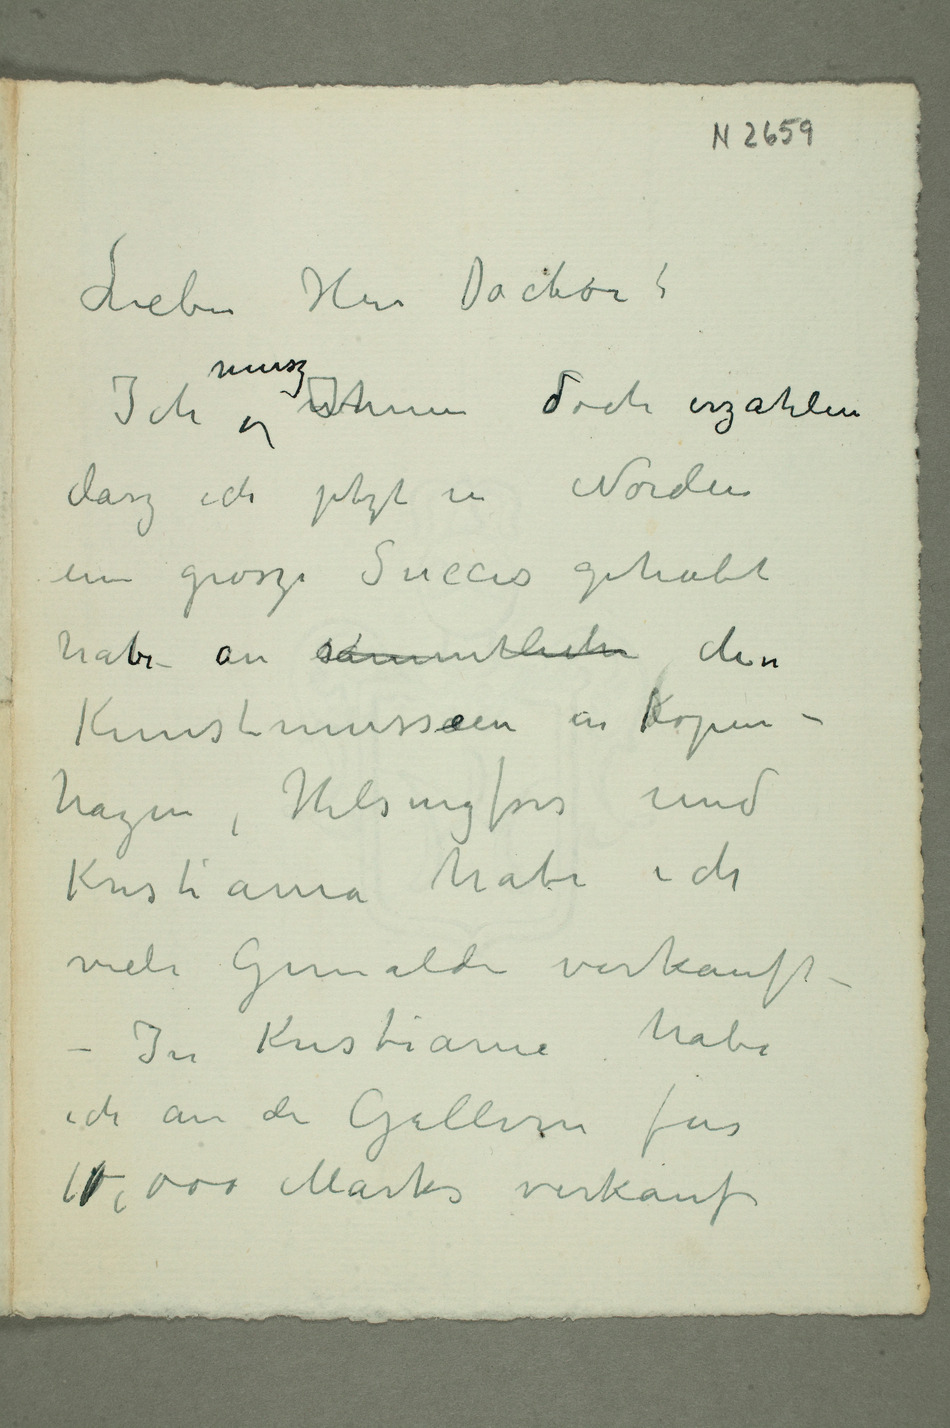 N 2659
Lieber Herr Docktor!
Ich musz Ihnen doch erzahlen
dasz ich jetzt in Norden
ein grosze Succes gehabt
habe – an sammtliche den
Kunstmusseen in Kopen-
hagen, Helsingfors und
Kristiania habe ich
viele Gemalde verkauft –
– In Kristiania habe
ich an de Gallerie fur
10,000 Marks verkauf